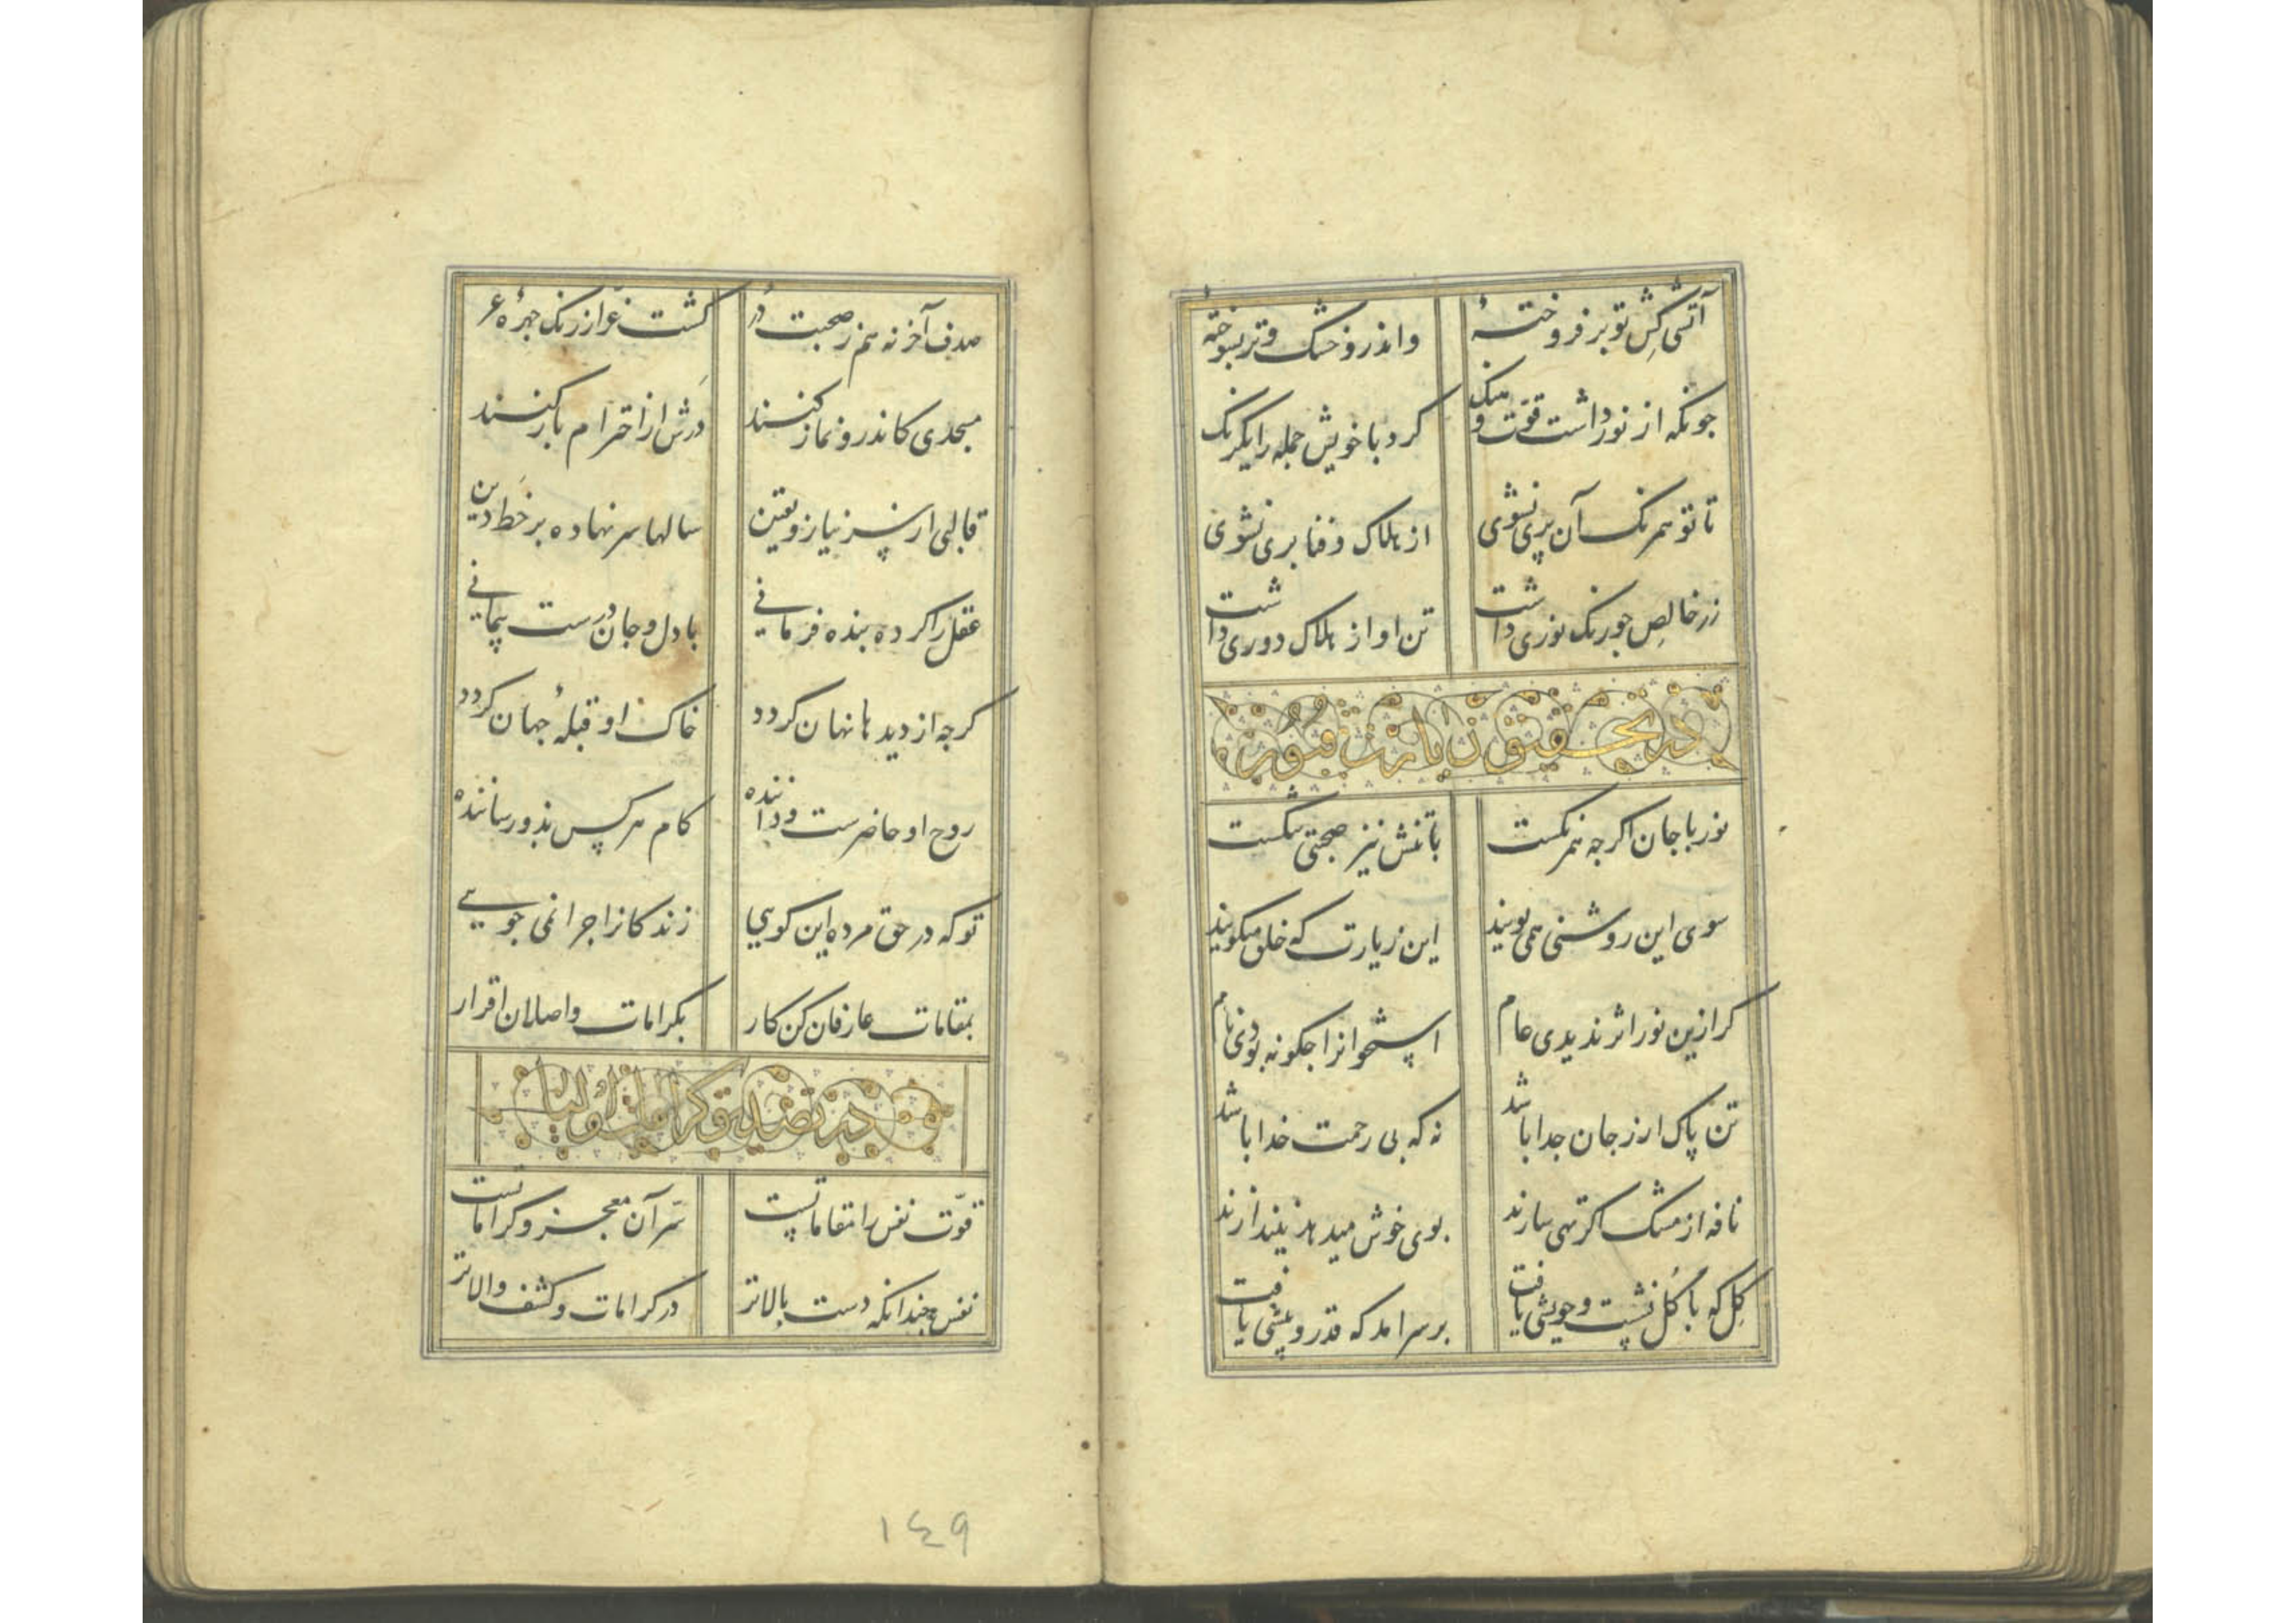 آتشی کش تو بر فروختهٔ واندرو خشک و تر بسوختهٔ
جونکه از نور داشت قوّت و سنک کرد با خویش جمله را یکرنک
تا تو همرنک آن پری نشوی از هلاک و فنا بری نشوی
زر خالص جو رنک نوری داشت تن او از هلاک دوری داشت
در تحقیق زیارت قبور
نور با جان اکرجه همرنکست با تنش نیز صحبتی تنکست
سوی این روشنی همی پویند این زیارت که خلق میکویند
کر ازین نور اثر ندیدی عام استخوانرا جکونه بودی نام
تن پاک ار ز جان جدا باشد نه که بی رحمت خدا باشد
نافه از مشک اکر تهی سازند بوی خوش میدهد نیندازند
کِل که با کُل نشست و خویشی یافت بر سر امد که قدر و بیشی یافت
صدف آخر نه هم ز صحبت دُر کشت غرّا ز رنک جهرهٔ
مسجدی کاندرو نماز کنند دَرش از احترام باز کنند
قالبی از سر نیاز و یقین سالها سر نهاده بر خَط دین
عقل را کرده بنده فرمانی با دل و جان درست پیمانی
کرجه از دیدها نهان کردد خاک او قبلهٔ جهان کردد
روح او حاضرست و داننده کام هر کس بدو رساننده
تو که در حق مرده این کویی زندکانرا جرا نمی جویی
بمقامات عارفان کن کار بکرامات واصلان اقرار
در تصدیق کرامات اولیا
قوّت نفس را مقاماتست سّر آن معجز و کراماتست
نفس جندانکه دست بالاتر در کرامات و کشف والاتر
١٤٩